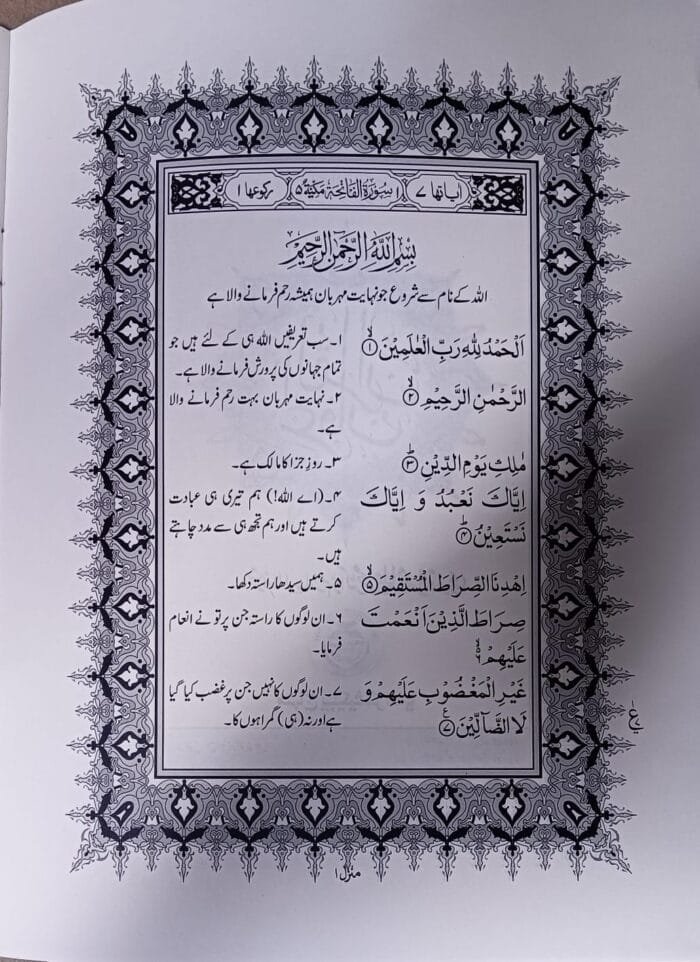 اٰیاتھا ۷ ۱ سُوْرَةُ الْفَاتِحَةِ مَكِّيَّةٌ ۵ رکوعھا ۱
بِسْمِ اللهِ الرَّحْمٰنِ الرَّحِيْمِ
اللہ کے نام سے شروع جو نہایت مہربان ہمیشہ رحم فرمانے والا ہے
اَلْحَمْدُ لِلّٰهِ رَبِّ الْعٰلَمِيْنَ ۙ‏﴿۱﴾
۱۔ سب تعریفیں اللہ ہی کے لئے ہیں جو
تمام جہانوں کی پرورش فرمانے والا ہے۔
الرَّحْمٰنِ الرَّحِيْمِ ۙ‏﴿۲﴾
۲۔ نہایت مہربان بہت رحم فرمانے والا
ہے۔
مٰلِكِ يَوْمِ الدِّيْنِ ؕ‏﴿۳﴾
۳۔ روزِ جزا کا مالک ہے۔
اِيَّاكَ نَعْبُدُ وَ اِيَّاكَ
نَسْتَعِيْنُ ؕ‏﴿۴﴾
۴۔ (اے اللہ!) ہم تیری ہی عبادت
کرتے ہیں اور ہم تجھ ہی سے مدد چاہتے
ہیں۔
اِهْدِنَا الصِّرَاطَ الْمُسْتَقِيْمَ ۙ‏﴿۵﴾
۵۔ ہمیں سیدھا راستہ دکھا۔
صِرَاطَ الَّذِيْنَ اَنْعَمْتَ
عَلَيْهِمْ ۙ۬ۦ۶
۶۔ ان لوگوں کا راستہ جن پر تو نے انعام
فرمایا۔
غَيْرِ الْمَغْضُوْبِ عَلَيْهِمْ وَ
لَا الضَّآلِّيْنَ ۠‏﴿۷﴾
۷۔ ان لوگوں کا نہیں جن پر غضب کیا گیا
ہے اور نہ (ہی) گمراہوں کا۔
ع
منزل ۱